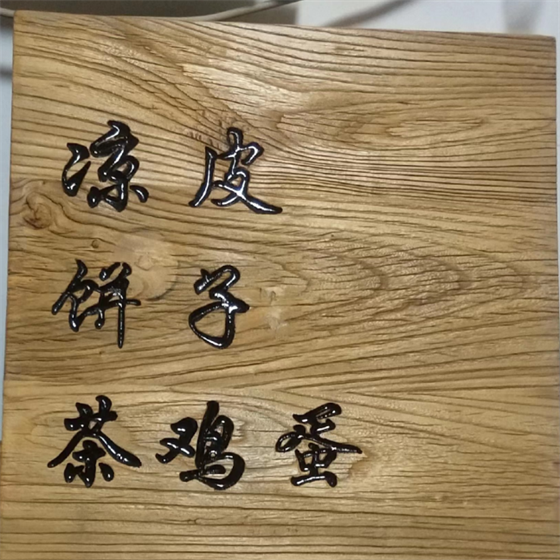 凉皮
饼子
茶鸡蛋